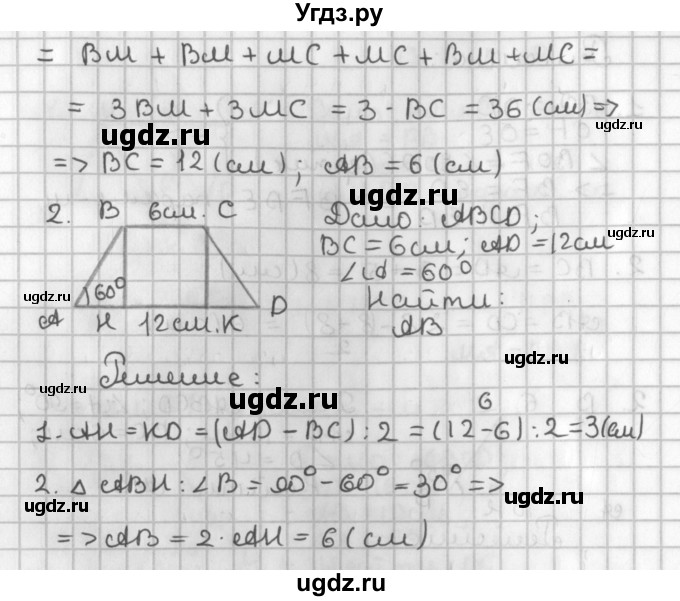 Угдз.ру
= BM + BM + MC + MC + BM + MC =
= 3BM + 3MC = 3 · BC = 36 (см) =>
ugdz.ru ugdz.ru
=> BC = 12 (см); AB = 6 (см)
ugdz.ru
2. B 6см. C Дано: ABCD;
BC = 6см; AD = 12см
ugdz.ru
∠A = 60°
60°
ugdz.ru
Найти:
A H 12см. K D AB
ugdz.ru
Решение:
ugdz.ru
ugdz.ru 6
1. AH = KD = (AD − BC) : 2 = (12 − 6) : 2 = 3(см)
ugdz.ru
2. △ ABH : ∠B = 90° − 60° = 30° =>
ugdz.ru ugdz.ru
=> AB = 2 · AH = 6 (см)
ugdz.ru
ugdz.ru